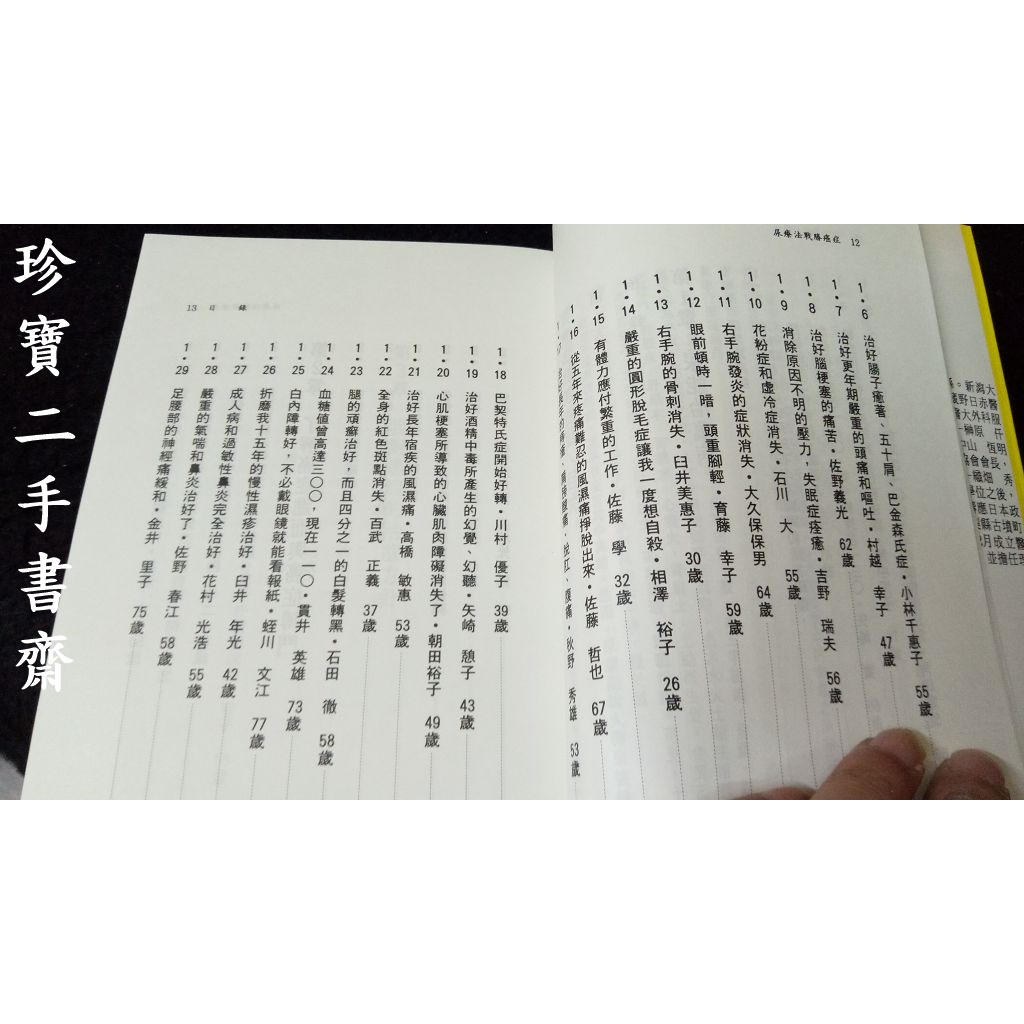 珍寶二手書齋
尿療法戰勝癌症 12
1・6 治好腸子瘉著、五十肩、巴金森氏症・小林千惠子 55歲
1・7 治好更年期嚴重的頭痛和嘔吐・村越 幸子 47歲
1・8 治好腦梗塞的痛苦・佐野義光 62歲
1・9 消除原因不明的壓力,失眠症痊癒・吉野 瑞夫 56歲
1・10 花粉症和虛冷症消失・石川 大 55歲
1・11 右手腕發炎的症狀消失・大久保保男 64歲
1・12 眼前頓時一暗,頭重腳輕・育藤 幸子 59歲
1・13 右手腕的骨刺消失・臼井美惠子 30歲
1・14 嚴重的圓形脫毛症讓我一度想自殺・相澤 裕子 26歲
1・15 有體力應付繁重的工作・佐藤 學 32歲
1・16 從五年來疼痛難忍的風濕痛掙脫出來・佐藤 哲也 67歲
脫肛、腹痛・秋野 秀雄 53歲
13 目 錄
1・18 巴契特氏症開始好轉・川村 優子 39歲
1・19 治好酒精中毒所產生的幻覺、幻聽・矢崎 憩子 43歲
1・20 心肌梗塞所導致的心臟肌肉障礙消失了・朝田裕子 49歲
1・21 治好長年宿疾的風濕痛・高橋 敏惠 53歲
1・22 全身的紅色斑點消失・百武 正義 37歲
1・23 腿的頑癬治好,而且四分之一的白髮轉黑・石田 徹 58歲
1・24 血糖值曾高達三〇〇,現在一一〇・貫井 英雄 73歲
1・25 白內障轉好,不必戴眼鏡就能看報紙・蛭川 文江 77歲
1・26 折磨我十五年的慢性濕疹治好・臼井 年光 42歲
1・27 成人病和過敏性鼻炎完全治好・花村 光浩 55歲
1・28 嚴重的氣喘和鼻炎治好了・佐野 春江 58歲
1・29 足腰部的神經痛緩和・金井 里子 75歲